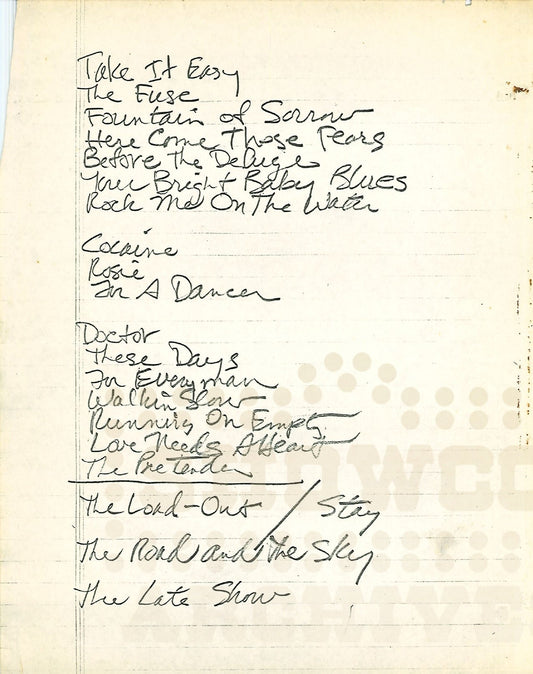 Take It Easy
The Fuse
Fountain of Sorrow
Here Come Those Tears
Before The Deluge
Your Bright Baby Blues
Rock Me On The Water
Cocaine
Rosie
For A Dancer
Doctor
These Days
For Everyman
Walkin Slow
Running On Empty
Love Needs A Heart
The Pretender
The Load-Out / Stay
The Road and The Sky
The Late Show
SHOWCO
ARCHIVES